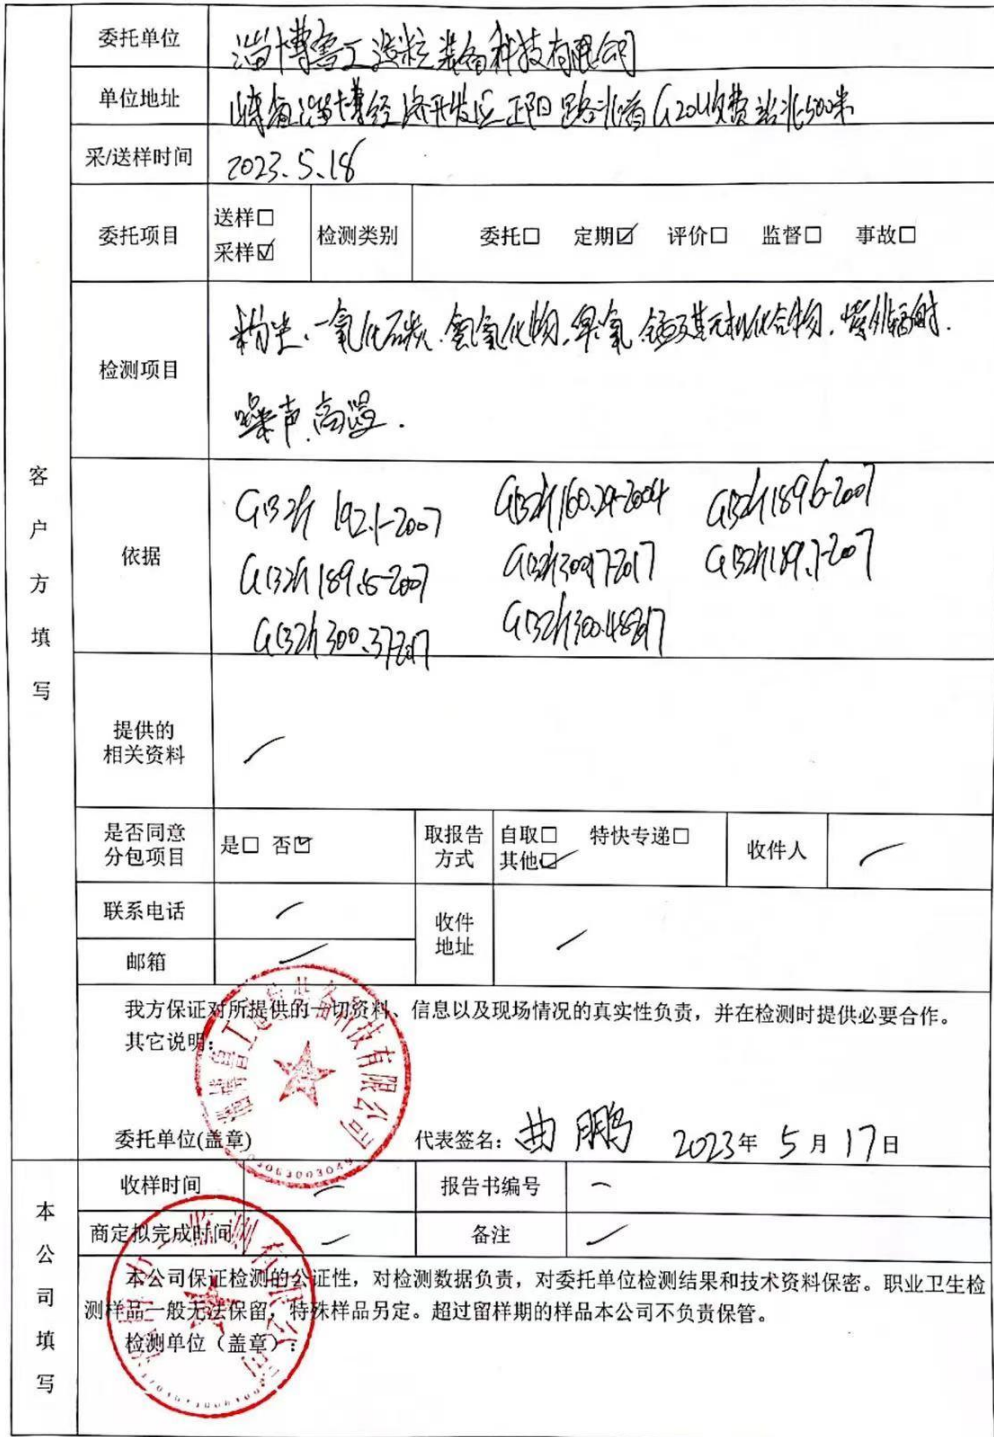 委托单位 淄博鲁工造粒装备科技有限公司
单位地址 淄博经济开发区正阳路北首G20收费站北500米
采/送样时间 2023.5.18
委托项目 送样□ 采样☑ 检测类别 委托□ 定期☑ 评价□ 监督□ 事故□
检测项目 粉尘、一氧化碳、氮氧化物、臭氧、锰及其无机化合物、紫外辐射、
噪声、高温.
依据 GBZ/T 192.1-2007 GBZ/T 160.29-2004 GBZ/T 189.6-2007
GBZ/T 189.8-2007 GBZ/T 300.17-2017 GBZ/T 189.7-2007
GBZ/T 300.37-2017 GBZ/T 300.48-2017
客户方填写
提供的
相关资料 /
是否同意
分包项目 是□ 否☑ 取报告
方式 自取□ 特快专递□
其他☑ 收件人 /
联系电话 / 收件
地址 /
邮箱 /
我方保证对所提供的一切资料、信息以及现场情况的真实性负责，并在检测时提供必要合作。
其它说明：
淄博鲁工造粒装备科技有限公司
委托单位(盖章) 代表签名: 曲鹏 2023年5月17日
本公司填写
收样时间 / 报告书编号 /
商定拟完成时间 / 备注 /
本公司保证检测的公证性，对检测数据负责，对委托单位检测结果和技术资料保密。职业卫生检
测样品一般无法保留，特殊样品另定。超过留样期的样品本公司不负责保管。
检测单位（盖章）: